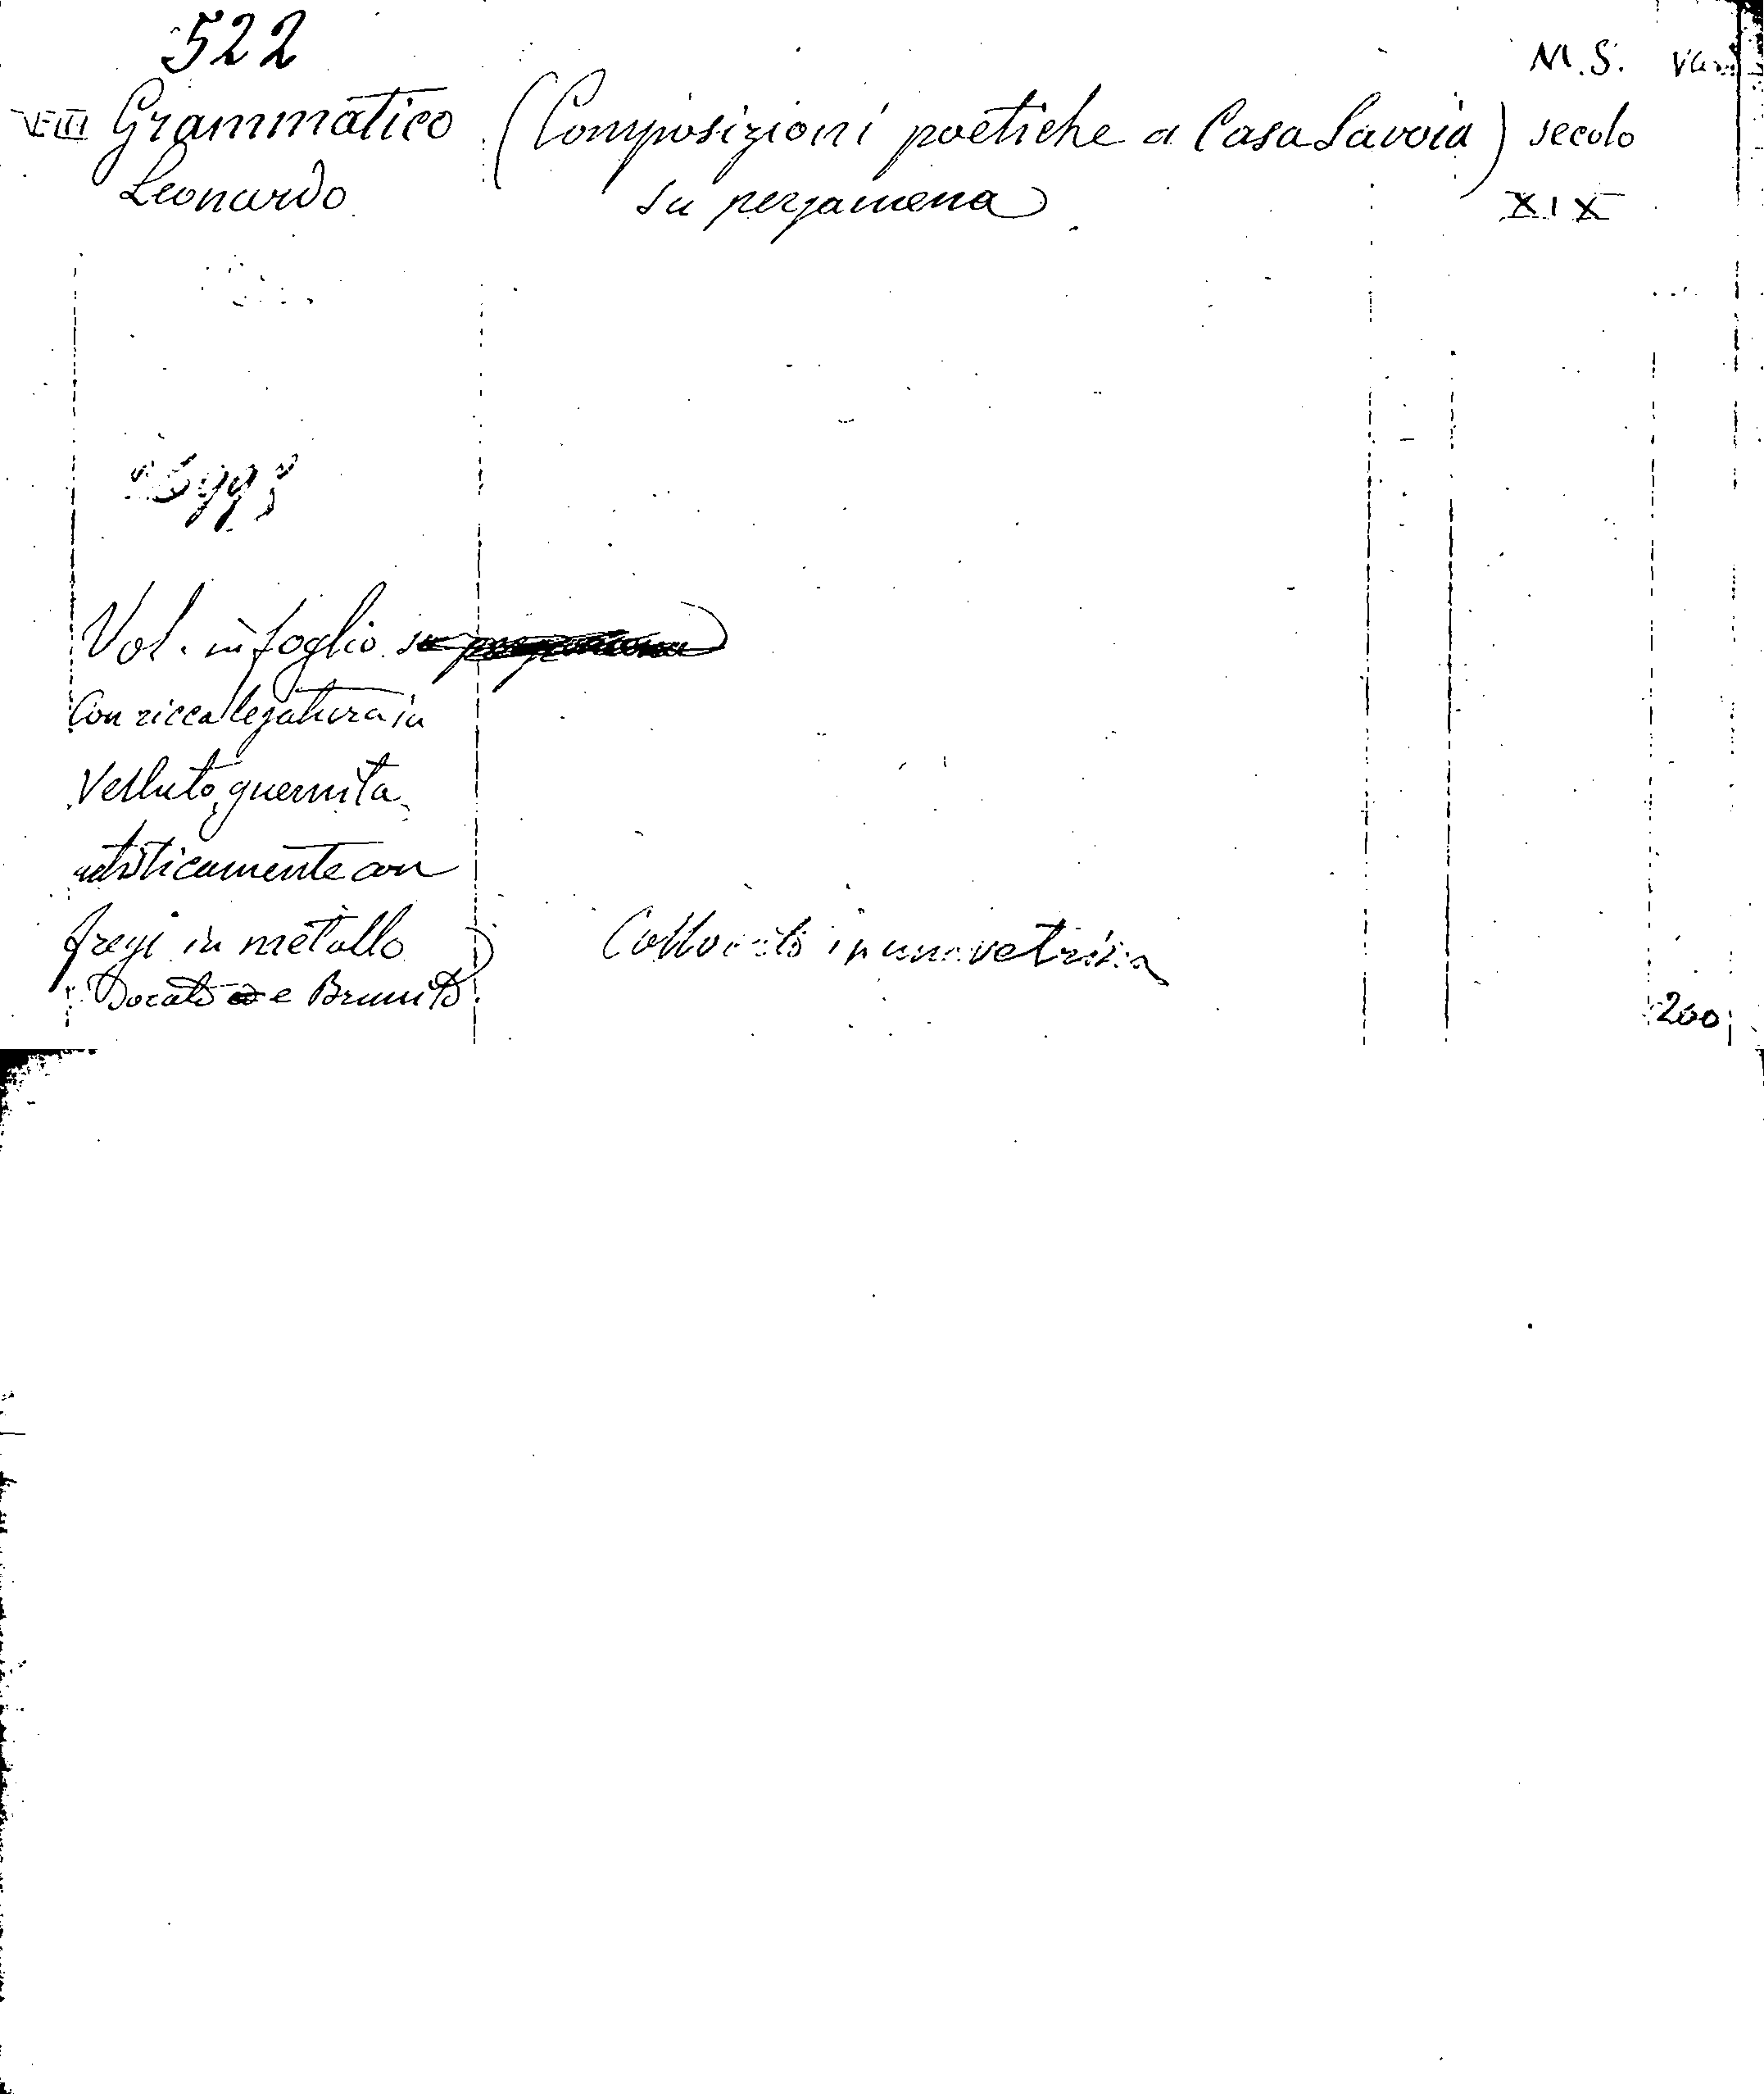 522
M.S.
VIII Grammatico (Composizioni poetiche a Casa Savoia) secolo
Leonardo su pergamena XIX
Vol. in foglio su pergamena
Con ricca legatura in
Velluto, guernita
artisticamente con
fregi in metallo Collocato in una vetrina
Dorato e Brunito.
200